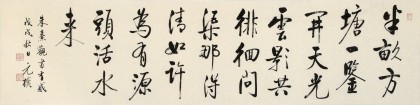 半畝方
塘一鑒
开天光
雲影共
徘徊問
渠那得
清如許
為有源
頭活水
来
朱熹觀書有感
戊戌秋日元